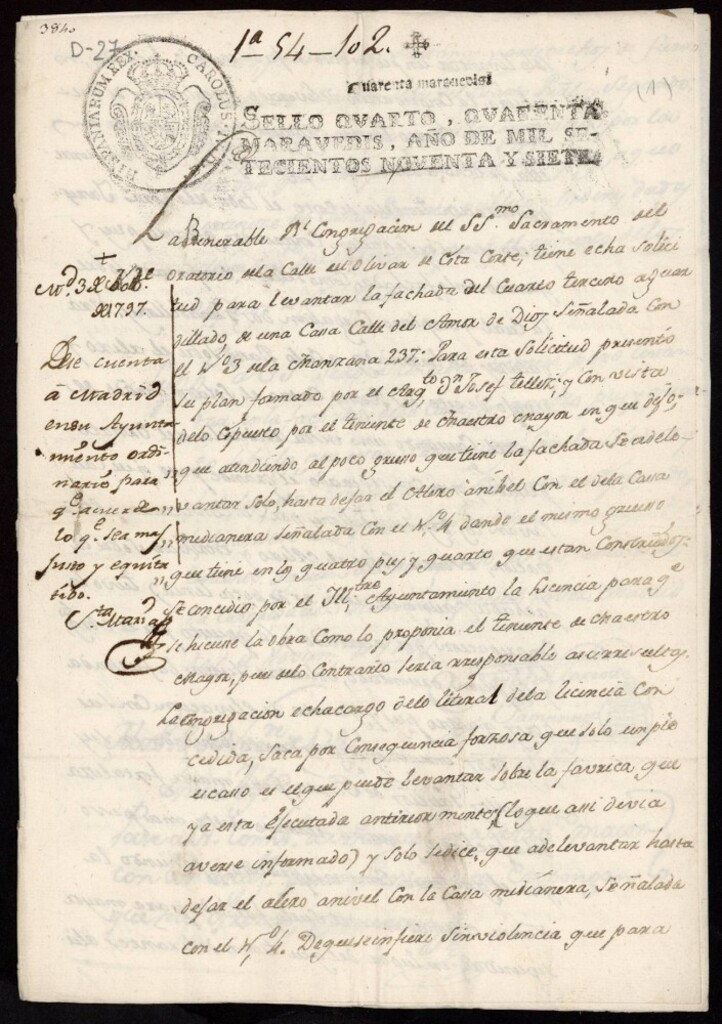 384.
D-27
1ª 54-102.
(1)
HISPANIARUM REX. CAROLUS IV D. G.
Quarenta maravedis
SELLO QVARTO, QVARENTA
MARAVEDIS, AÑO DE MIL SE-
TECIENTOS NOVENTA Y SIETE.
La Venerable Rl Congregacion del SSmo Sacramento del
oratorio de la Calle del Olivar de esta Corte; tiene echa solici
tud para levantar la fachada del Cuarto tercero aguar
dillado, de una Casa Calle del Amor de Dios, Señalada Con
el Nº 3 de la Manzana 237: Para esta Solicitud presentó
su plan formado por el Arqto Dn Josef Tellez; y Con vista
delo Expuesto por el teniente de Maestro mayor en que dijo,
que atendiendo al poco grueso que tiene la fachada Se adele
vantar solo, hasta dejar el Alero anibel Con el dela Casa
medianera señalada Con el Nº 4 dando el mismo grueso
que tiene en los quatro pies y quarto que estan Construidos;
Se concedio por el Illtre Ayuntamiento la licencia para qe
se hiciese la obra Como lo proponia el teniente de Maestro
Mayor, pues delo Contrario seria responsable
La Congregacion echa cargo delo literal dela licencia Con
cedida, saca por Consequencia forzosa que solo un pie
escaso es el que puede levantar sobre la favrica que
ya esta Ejecutada anteriormente (lo que asi devia
averse informado) y solo sedice, que adelevantar hasta
dejar el alero anivel Con la Casa medianera, Señalada
con el Nº 4. De que se infiere sin violencia que para
Md 3 de
de 1797.
Dese cuenta
á Madrid
en su Ayunta
miento ordi
nario para
qe acuerde
lo qe sea mas
justo y equita
tibo.
Sta Maria